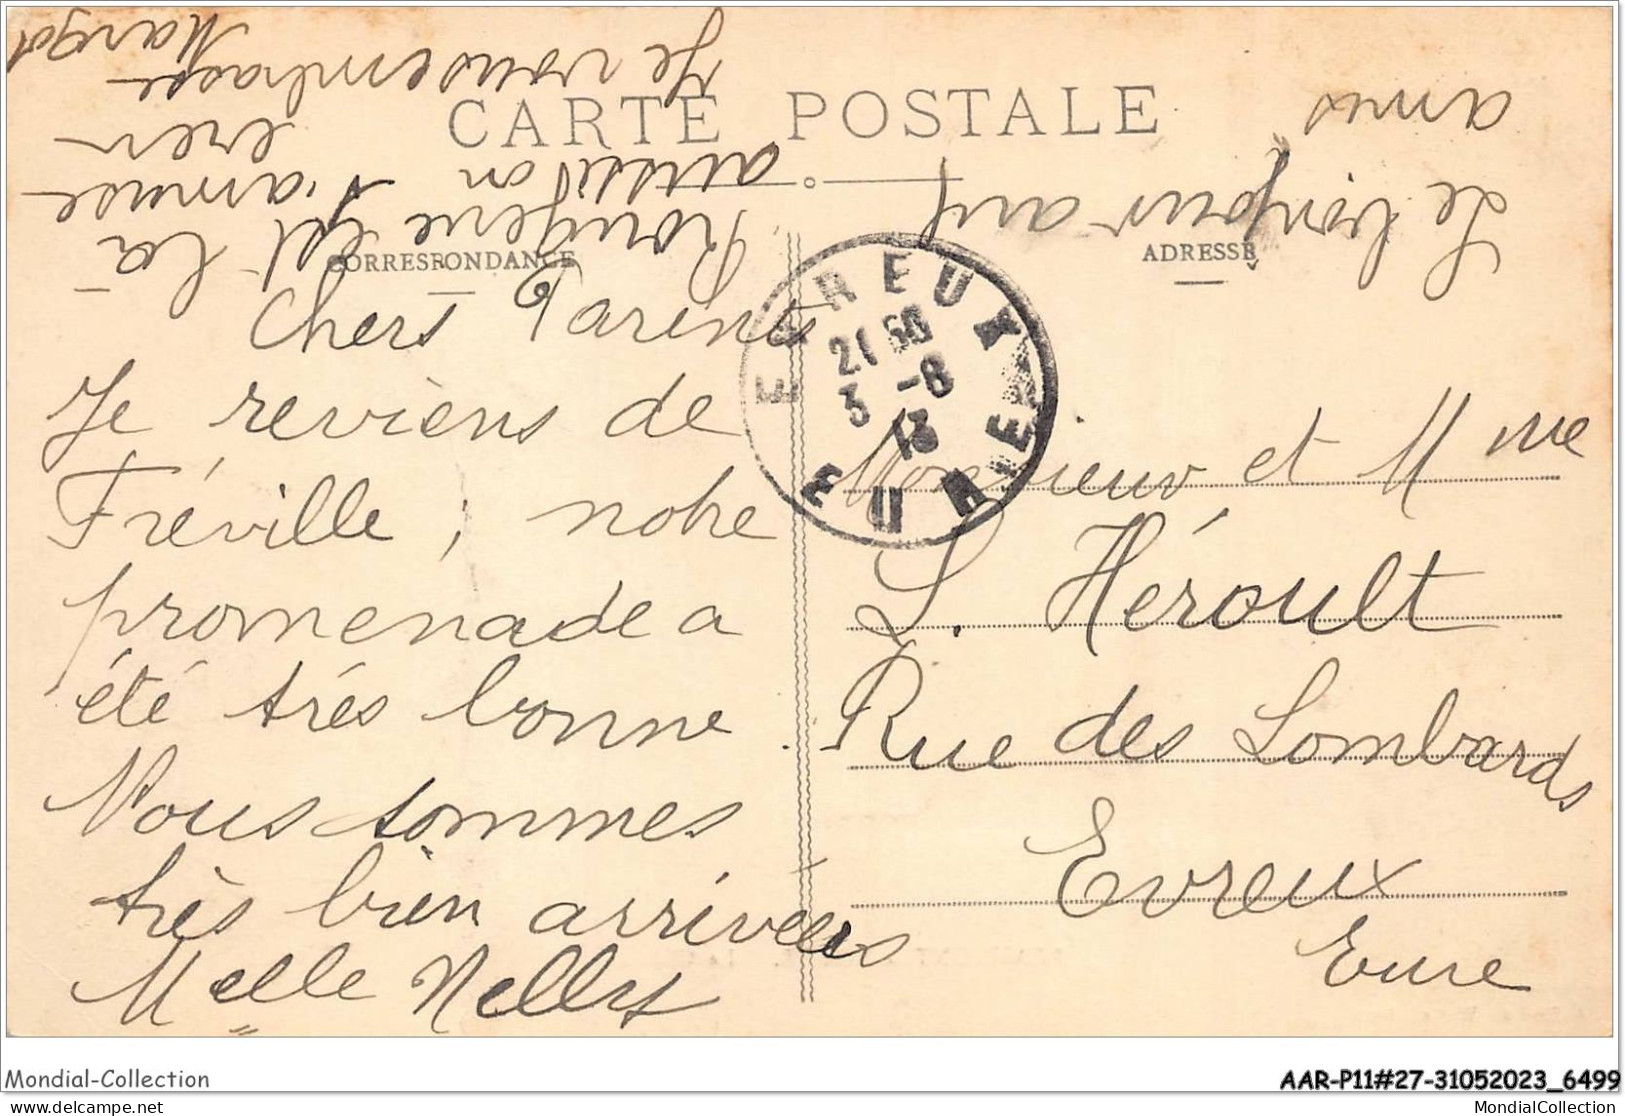 CARTE POSTALE
CORRESPONDANCE
ADRESSE
Chers Parents
Je reviens de
Fréville ; notre
promenade a
été très bonne.
Nous sommes
très bien arrivées
Melle Nelly
Rougerie est là
aussi on s'amuse
Je vous embrasse
Margot
Le bonjour aux
amis
EVREUX
21 50
3 -8
13
EURE
Monsieur et Mme
L. Héroult
Rue des Lombards
Evreux
Eure
Mondial-Collection
AAR-P11#27-31052023_6499
delcampe.net
MondialCollection